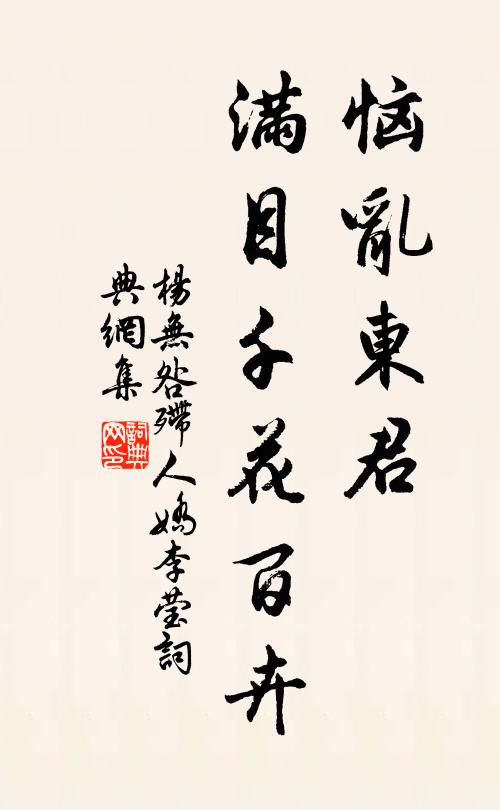 恼亂東君
滿目千花百卉
楊無咎殢人嬌李瑩詞
典網集
詞典
网印